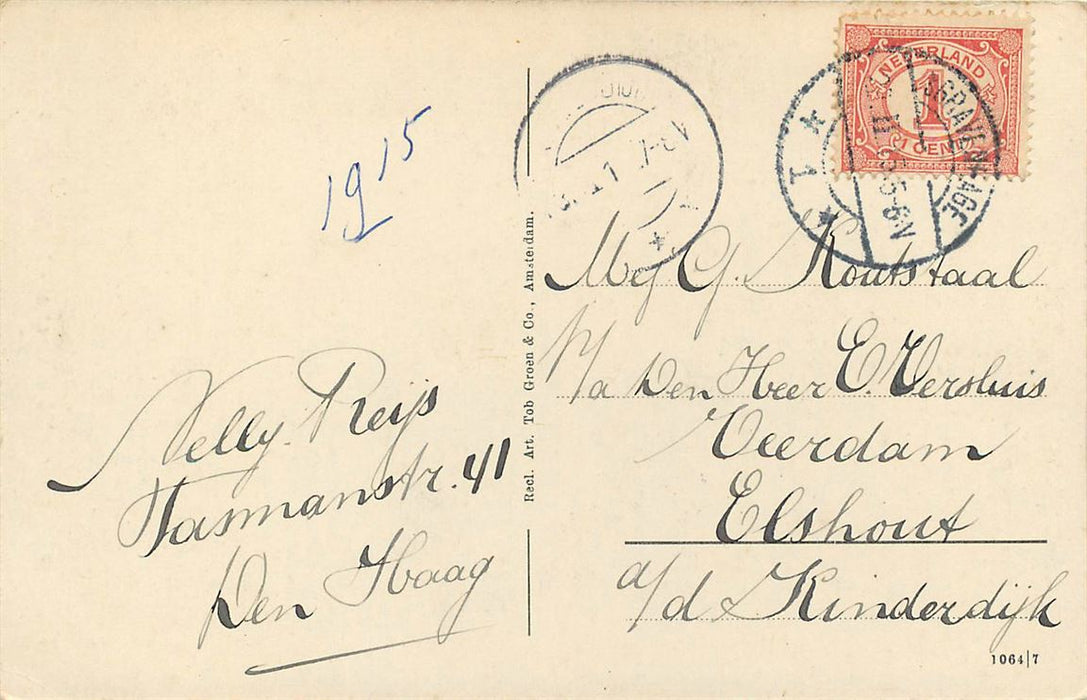 1915
Nelly Reijs
Tasmanstr. 41
Den Haag
Recl. Art. Tob Groen & Co., Amsterdam.
NEDERLAND
1
1 CENT
5-6N
1
Mej G. Houtstaal
p/a Den Heer E. Versluis
Veerdam
Elshout
a/d Kinderdijk
1064|7